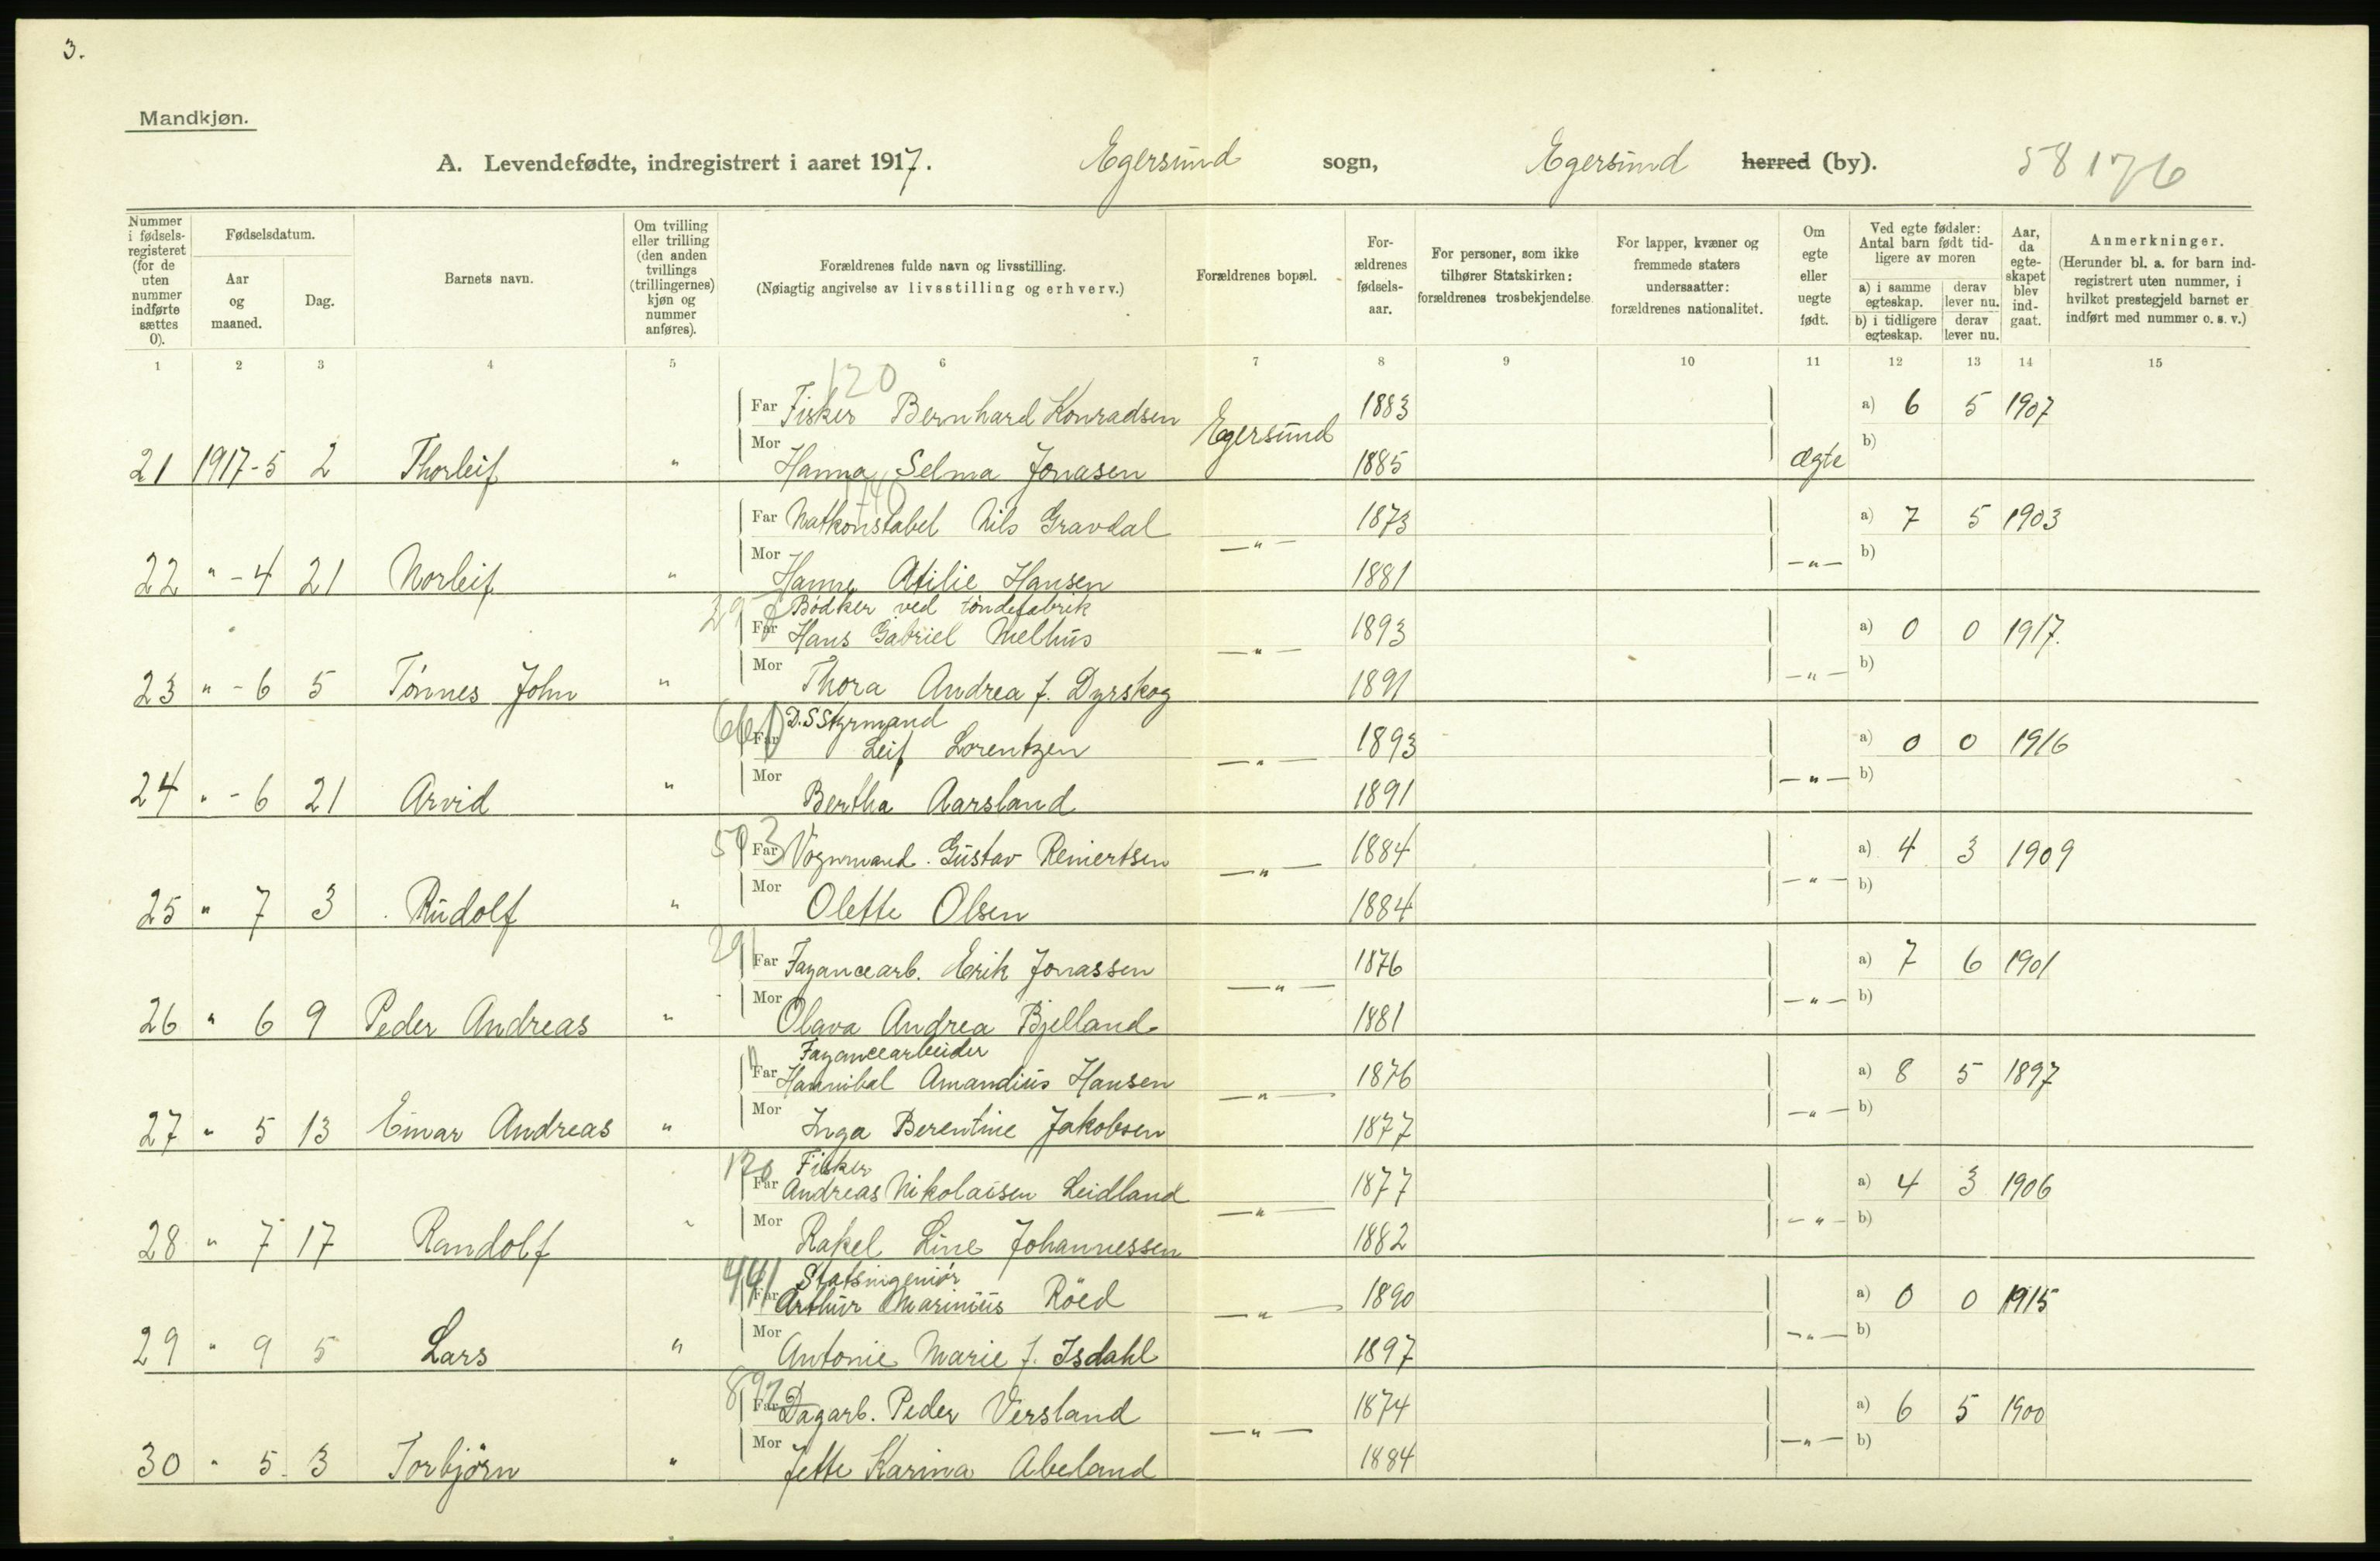 3.
Mandkjøn.
A. Levendefødte, indregistrert i aaret 1917. Egersund sogn, Egersund herred (by). 58176
Nummer i fødsels-registeret (for de uten nummer indførte sættes 0).
Fødselsdatum.
Aar og maaned.
Dag.
Barnets navn.
Om tvilling eller trilling (den anden tvillings (trillingernes) kjøn og nummer anføres).
Forældrenes fulde navn og livsstilling.
(Nøiagtig angivelse av livsstilling og erhverv.)
Forældrenes bopæl.
For-ældrenes fødsels-aar.
For personer, som ikke tilhører Statskirken: forældrenes trosbekjendelse.
For lapper, kvæner og fremmede staters undersaatter: forældrenes nationalitet.
Om egte eller uegte født.
Ved egte fødsler: Antal barn født tid-ligere av moren
a) i samme egteskap. derav lever nu.
b) i tidligere egteskap. derav lever nu.
Aar, da egte-skapet blev ind-gaat.
Anmerkninger.
(Herunder bl. a. for barn ind-registrert uten nummer, i hvilket prestegjeld barnet er indført med nummer o. s. v.)
1 2 3 4 5 6 7 8 9 10 11 12 13 14 15
120
Far Fisker Bernhard Konradsen Egersund 1883 a) 6 5 1907
21 1917-5 2 Thorleif " Mor Hanna Selma Jonasen 1885 ægte b)
Far Natkonstabel Nils Gravdal —"— 1873 a) 7 5 1903
22 " - 4 21 Norleif " Mor Hanna Otilie Hansen 1881 —"— b)
Bödker ved töndefabrik
Far Hans Gabriel Melhus —"— 1893 a) 0 0 1917.
23 " - 6 5 Tönnes John " Mor Thora Andrea f. Dyrskog 1891 —"— b)
D.S Styrmand
Far Leif Lorentzen —"— 1893 a) 0 0 1916
24 " - 6 21 Arvid " Mor Bertha Aarsland 1891 —"— b)
503 Far Vognmand. Gustav Reinertsen —"— 1884 a) 4 3 1909
25 " 7 3 Rudolf " Mor Olette Olsen 1884 —"— b)
291 Far Fayancearb. Erik Jonassen —"— 1876 a) 7 6 1901
26 " 6 9 Peder Andreas " Mor Olava Andrea Bjelland 1881 —"— b)
Fayancearbeider
Far Hannibal Amandius Hansen —"— 1876 a) 8 5 1897
27 " 5 13 Einar Andreas " Mor Inga Berentine Jakobsen 1877 —"— b)
120 Fisker
Far Andreas Nikolaisen Leidland —"— 1877 a) 4 3 1906
28 " 7 17 Randolf " Mor Rakel Line Johannessen 1882 —"— b)
441 Statsingeniör
Far Arthur Marinius Röed —"— 1890 a) 0 0 1915
29 " 9 5 Lars " Mor Antonie Marie f. Isdahl 1897 —"— b)
892 Far Dagarb. Peder Versland —"— 1874 a) 6 5 1900
30 " 5 3 Torbjörn " Mor Jette Karina Abeland 1884 —"— b)